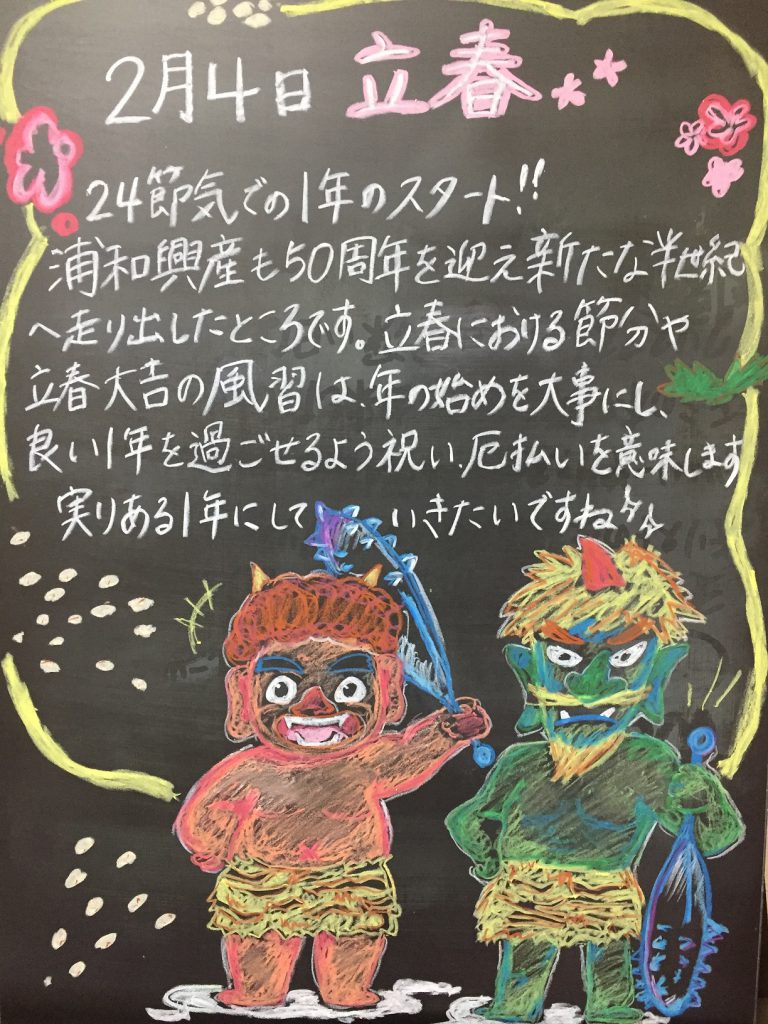 2月4日 立春
24節気での1年のスタート!!
浦和興産も50周年を迎え新たな半世紀
へ走り出したところです。立春における節分や
立春大吉の風習は、年の始めを大事にし、
良い1年を過ごせるよう祝い、厄払いを意味します
実りある1年にして いきたいですね